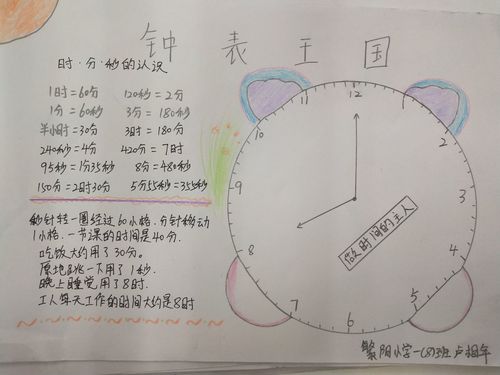 钟表王国
时·分·秒的认识
1时=60分 120秒=2分
1分=60秒 3分=180秒
半小时=30分 3时=180分
240秒=4分 420分=7时
95秒=1分35秒 8分=480秒
150分=2时30分 5分55秒=355秒
秒针转一圈经过60小格.分针移动
1小格.一节课的时间是40分.
吃饭大约用了30分。
原地跳一下用了1秒.
晚上睡觉用了8时.
工人每天工作的时间大约是8时
12
11
10
9
8
7
6
5
4
3
2
做时间的主人
繁阳小学一(8)班卢相年